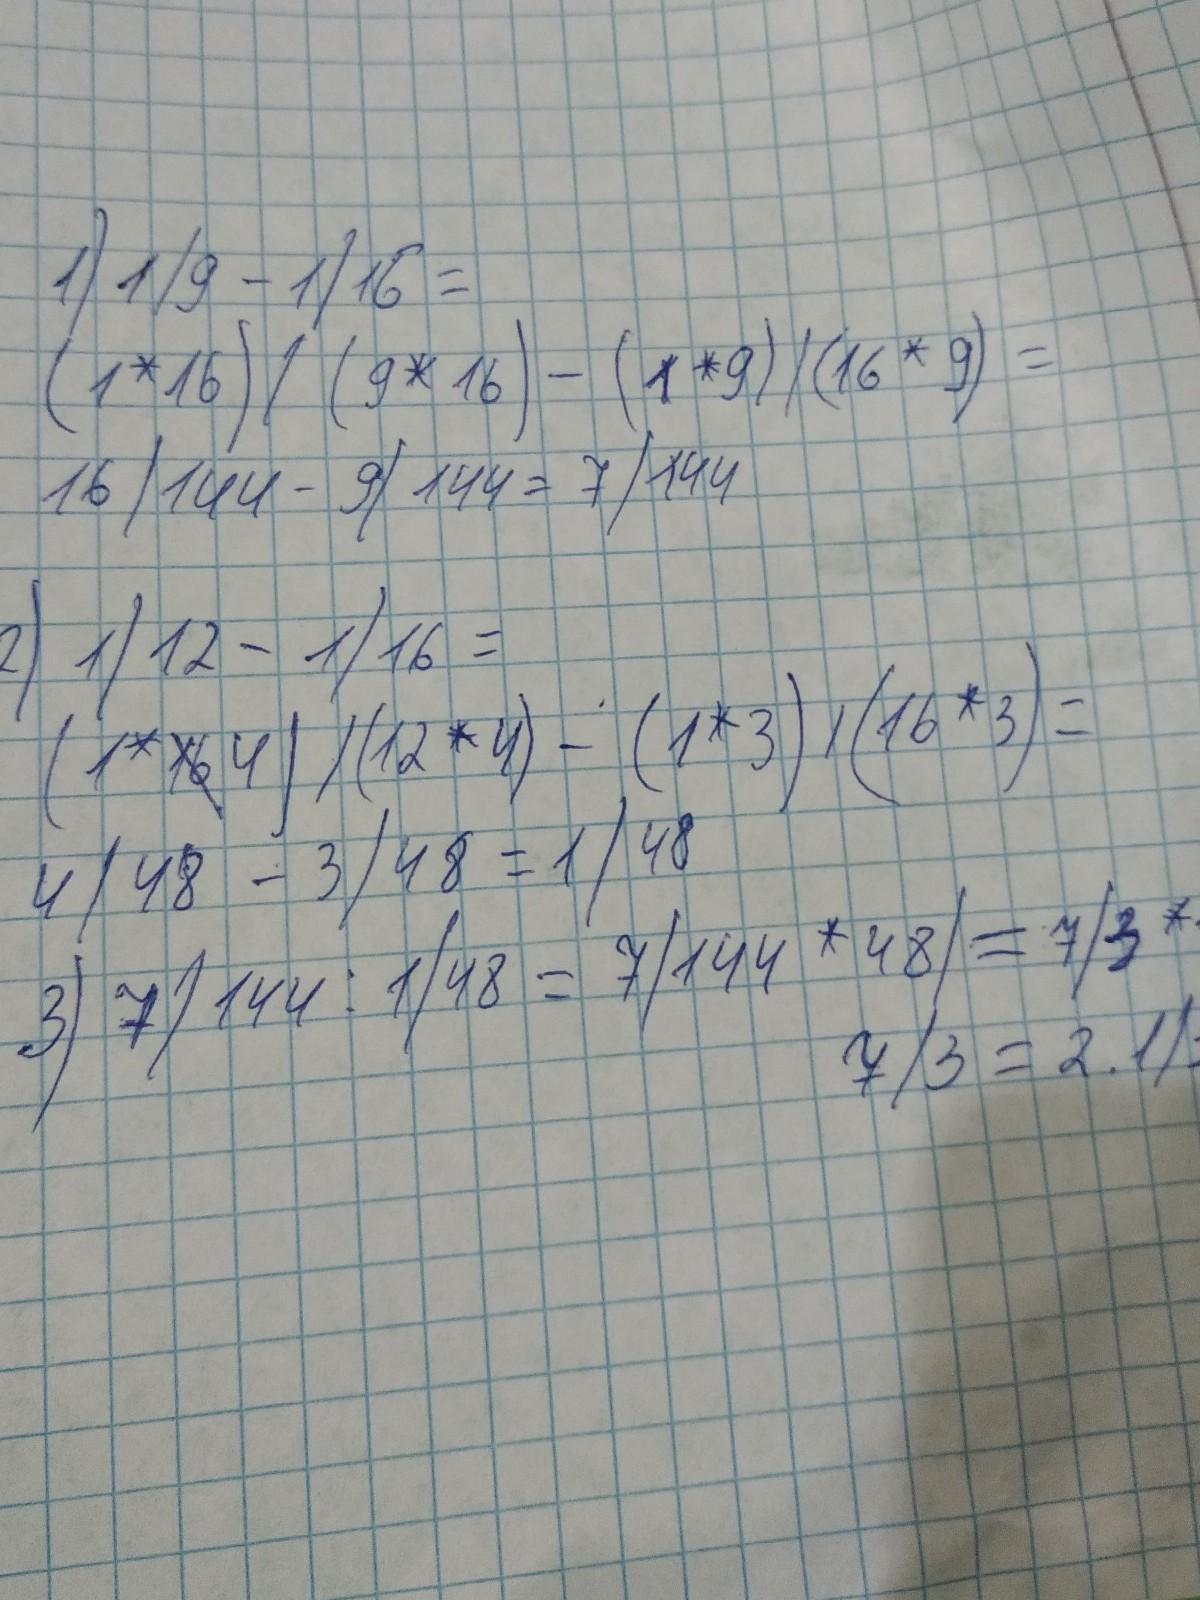 1) 1/9 - 1/16 =
(1*16) / (9*16) - (1*9) / (16*9) =
16/144 - 9/144 = 7/144
2) 1/12 - 1/16 =
(1*4) / (12*4) - (1*3) / (16*3) =
4/48 - 3/48 = 1/48
3) 7/144 : 1/48 = 7/144 * 48/ = 7/3 *
7/3 = 2.1/